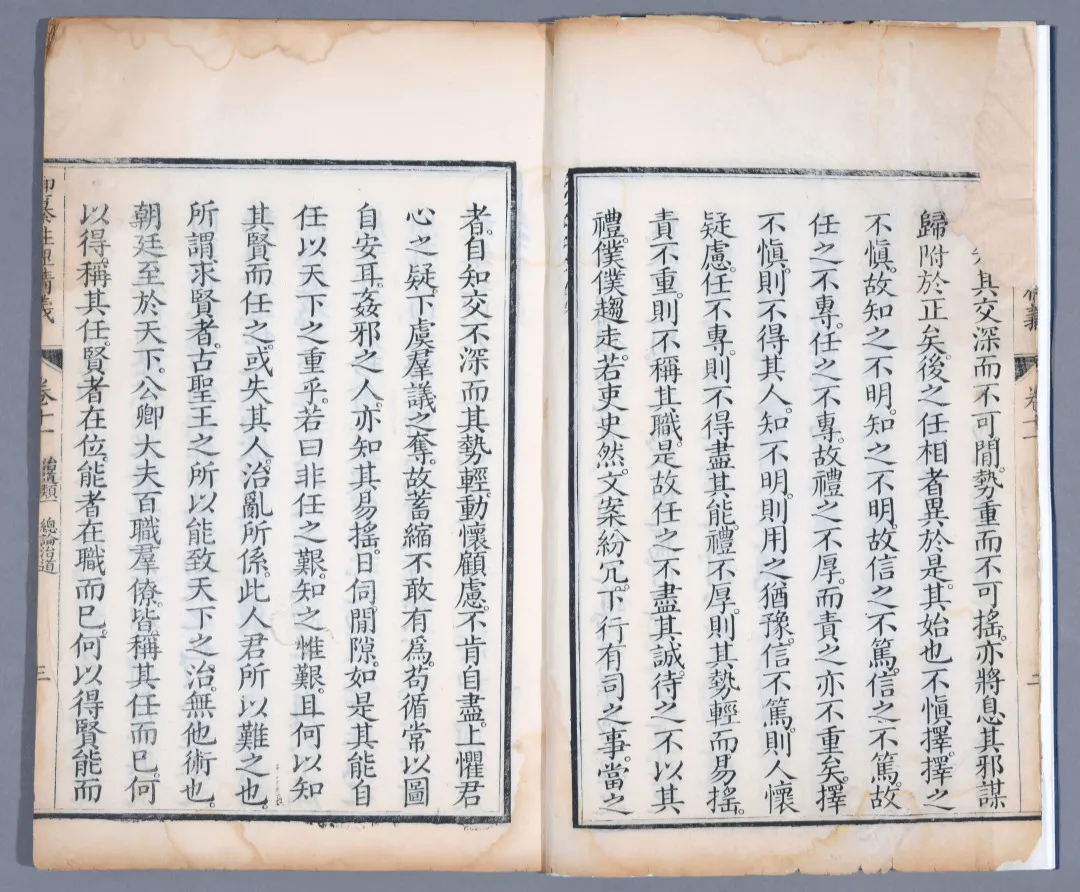 義 卷十一 二
其交深而不可閒。勢重而不可搖。亦將息其邪謀
歸附於正矣。後之任相者異於是。其始也不慎擇。擇之
不慎。故知之不明。知之不明。故信之不篤。信之不篤。故
任之不專。任之不專。故禮之不厚。而責之亦不重矣。擇
不慎。則不得其人。知不明。則用之猶豫。信不篤。則人懷
疑慮。任不專。則不得盡其能。禮不厚。則其勢輕而易搖。
責不重。則不稱其職。是故任之不盡其誠。待之不以其
禮。僕僕趨走。若吏史然。文案紛冗。下行有司之事。當之
者。自知交不深而其勢輕。動懷顧慮。不肯自盡。上懼君
心之疑。下虞羣議之奪。故蓄縮不敢有爲。苟循常以圖
自安耳。姦邪之人。亦知其易搖。日伺閒隙。如是其能自
任以天下之重乎。若曰非任之艱。知之惟艱。且何以知
其賢而任之。或失其人。治亂所係。此人君所以難之也。
所謂求賢者。古聖王之所以能致天下之治。無他術也。
朝廷至於天下。公卿大夫百職羣僚。皆稱其任而已。何
以得稱其任。賢者在位。能者在職而已。何以得賢能而
御纂性理精義 卷十一 治道類一 總論治道 三